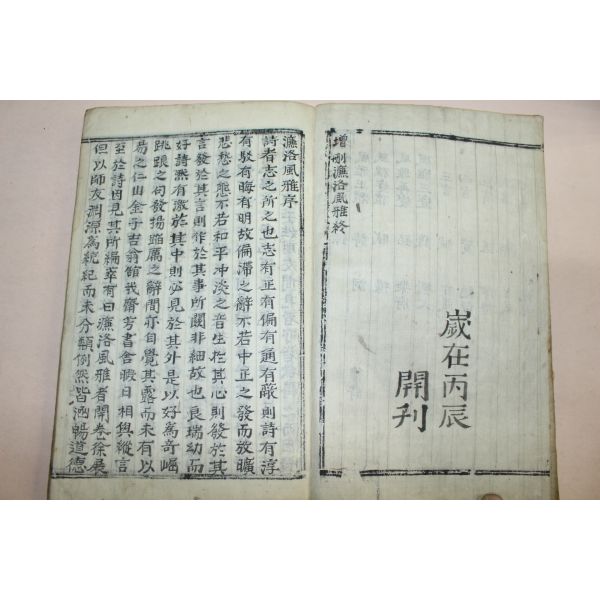 增刪濂洛風雅終
歲在丙辰
開刋
濂洛風雅序
詩者志之所之也志有正有偏有通有蔽則詩有浮
有駁有晦有明故偏滯之辭不若中正之發而放曠
悲愁之態不若和平冲淡之音生於其心則發於其
言發於其言則作於其事所關非細故也良瑞幼而
好詩然有激於其中則必見於其外是以好爲奇崛
跳踉之句發揚蹈厲之辭間亦自覺其露而未有以
易之仁山金子吉翁館我齋芳書舍暇日相與縱言
至於詩因見其所編萃有曰濂洛風雅者開卷徐展
但以師友淵源爲統紀而未分類例然皆洒暢道德